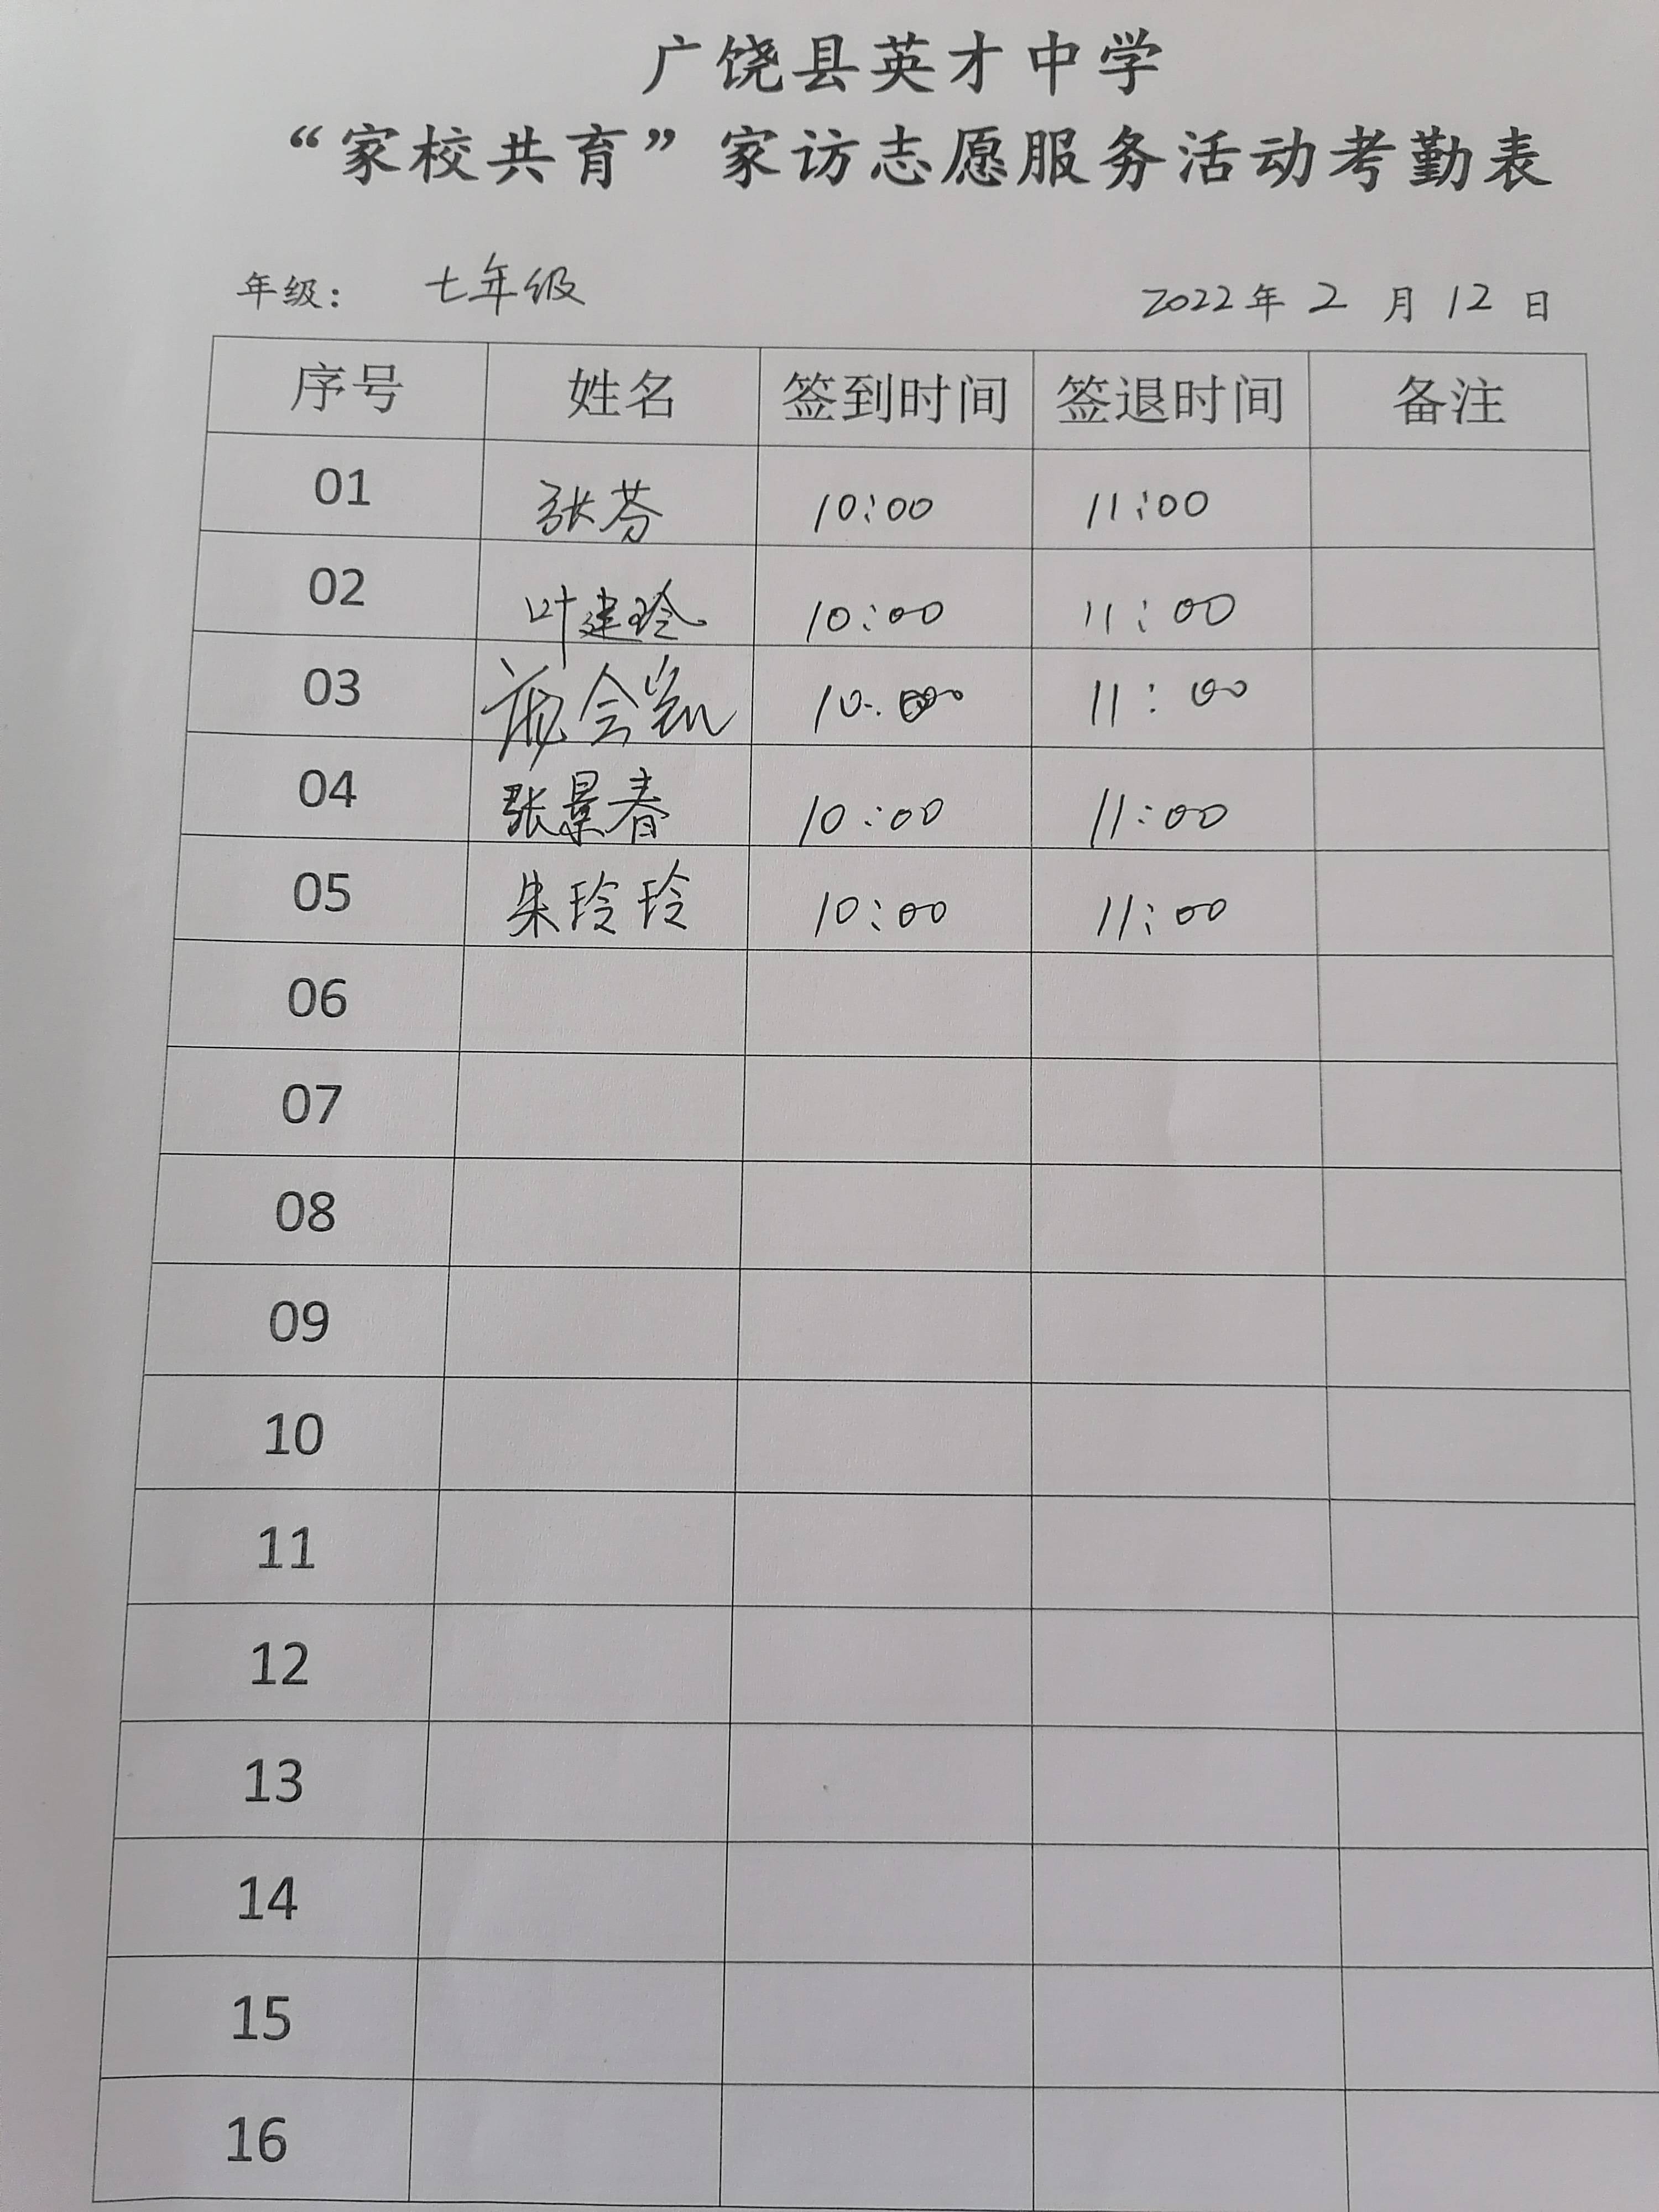 广饶县英才中学
“家校共育”家访志愿服务活动考勤表
年级： 七年级 2022年 2 月 12 日
序号 姓名 签到时间 签退时间 备注
01 张芬 10:00 11:00
02 叶建玲 10:00 11:00
03 10:00 11:00
04 张景春 10:00 11:00
05 朱玲玲 10:00 11:00
06
07
08
09
10
11
12
13
14
15
16